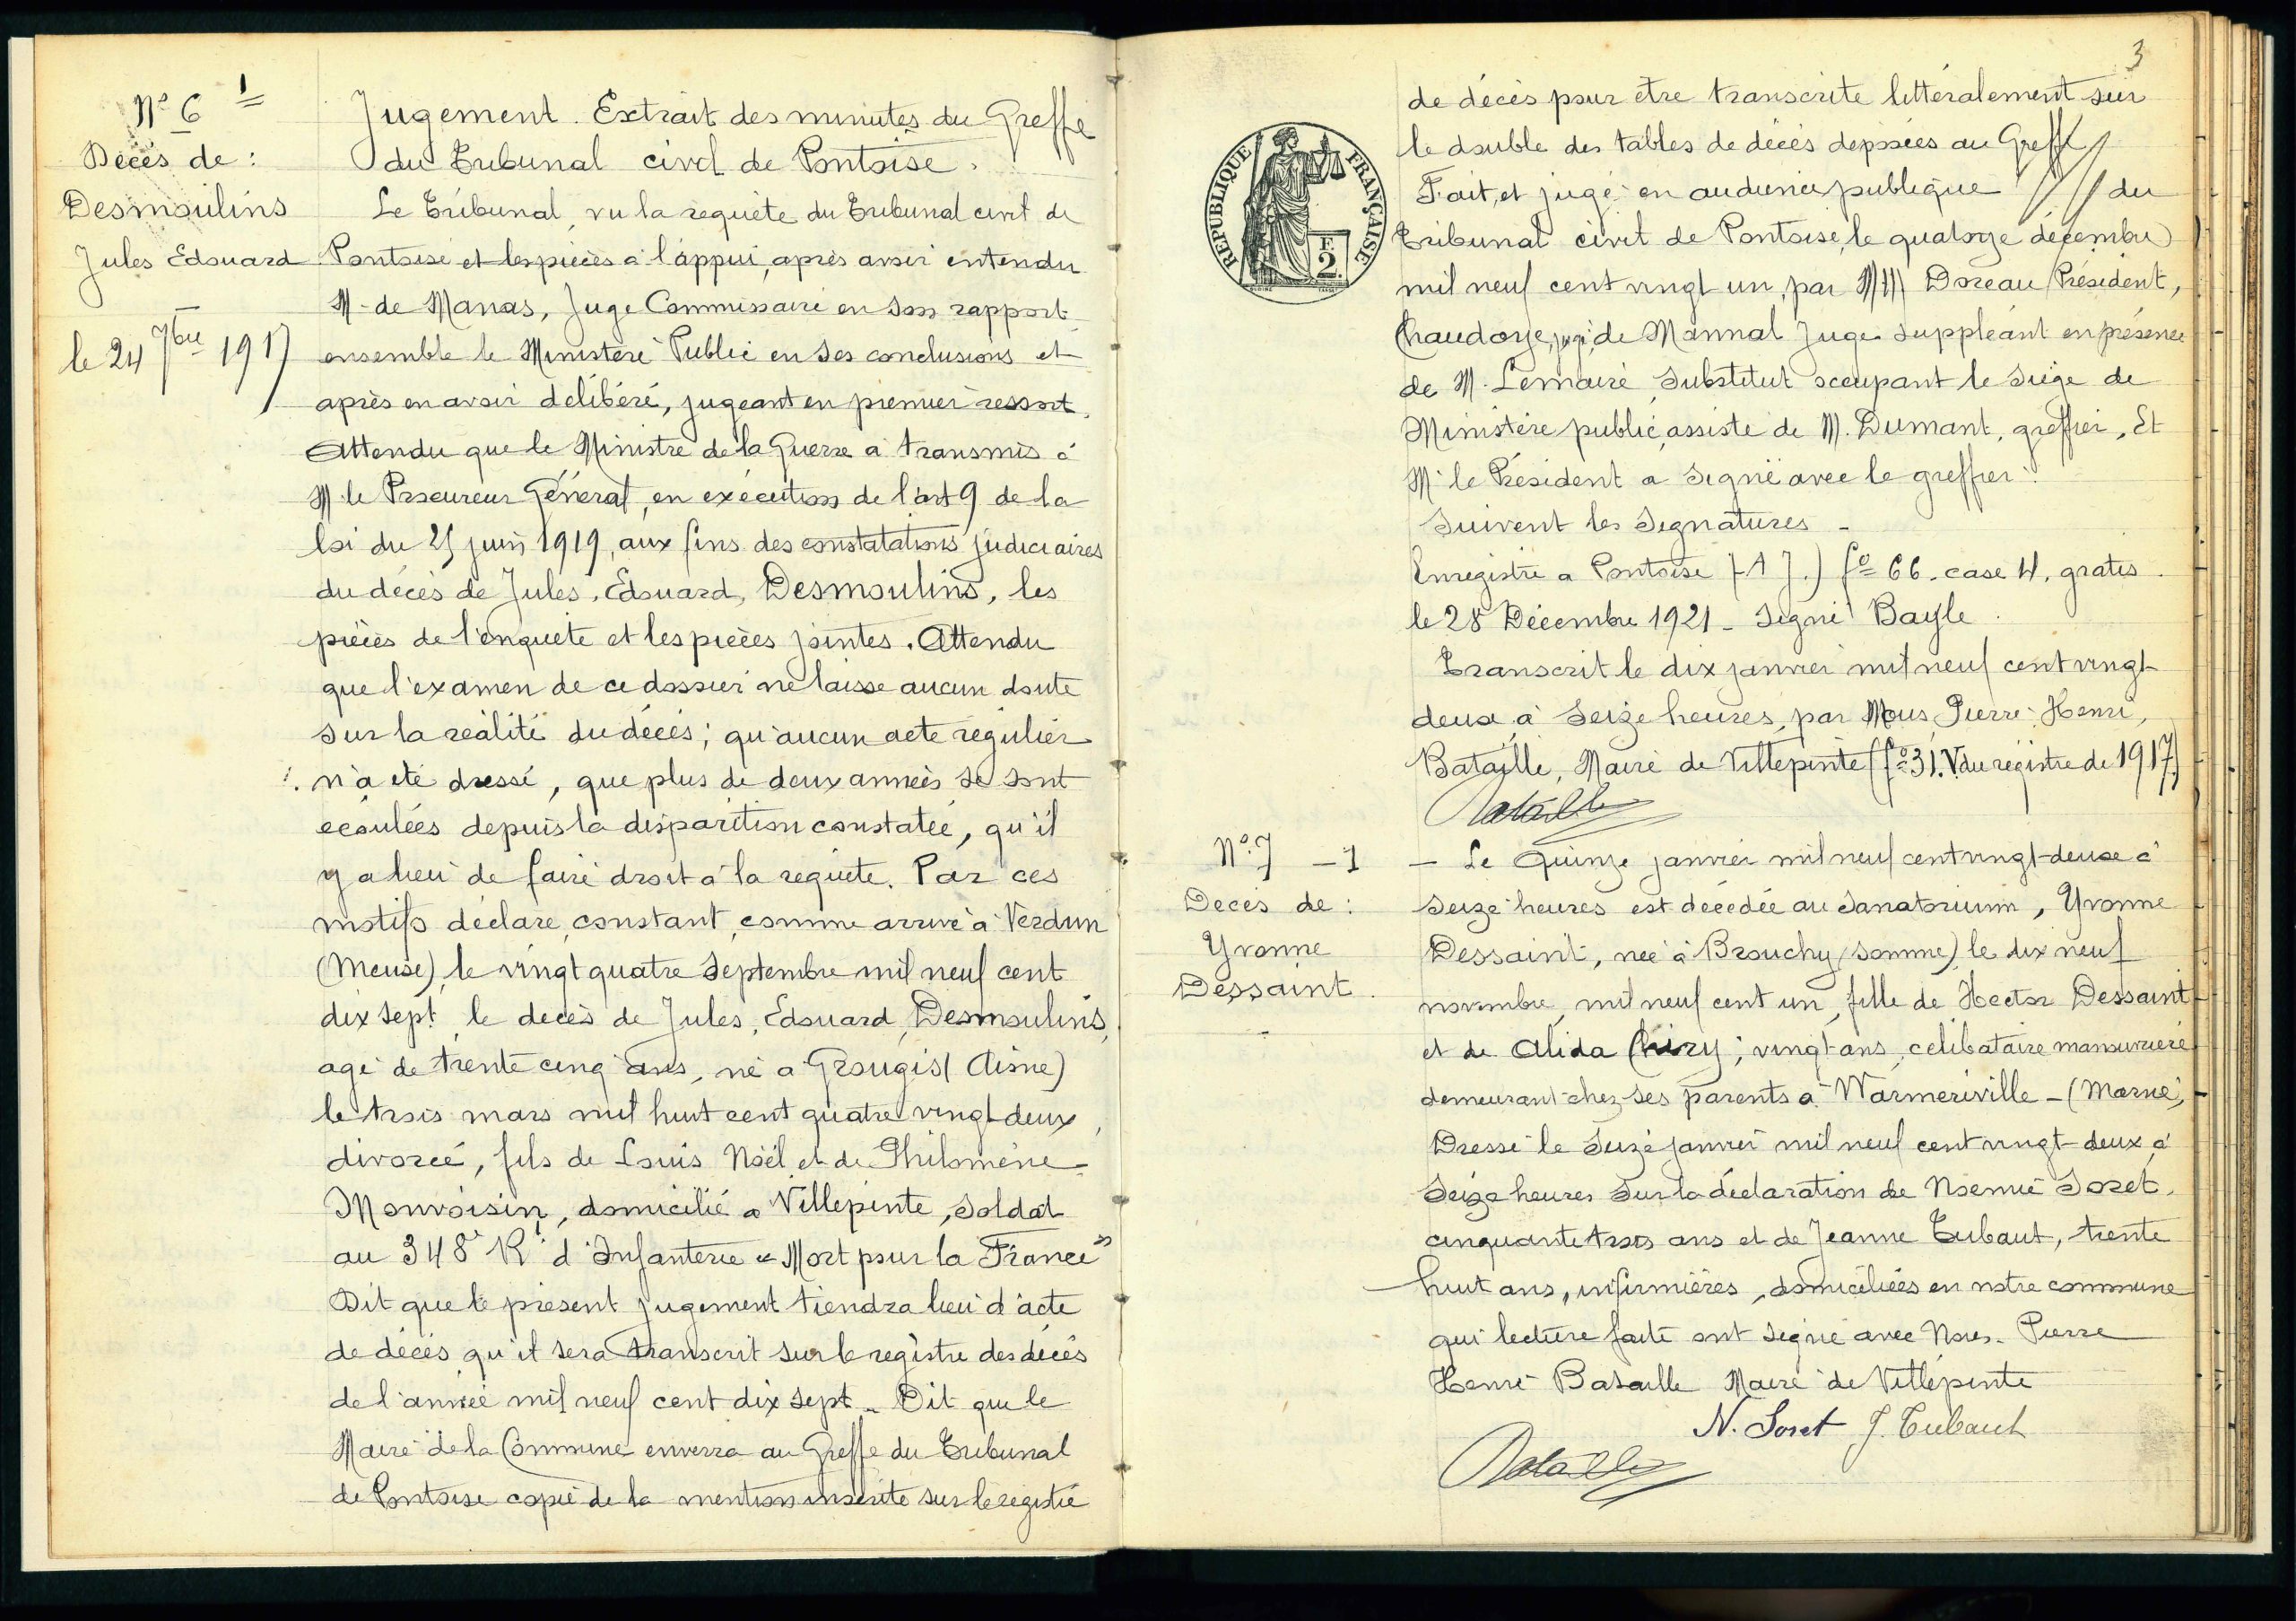 N° 6 1
Décès de :
Desmoulins
Jules Edouard
le 24 7bre 1917
Jugement. Extrait des minutes du Greffe
du Tribunal civil de Pontoise.
Le Tribunal, vu la requête du Tribunal civil de
Pontoise et les pièces à l'appui, après avoir entendu
M. de Manas, Juge Commissaire en son rapport
ensemble le Ministère Public en ses conclusions et
après en avoir délibéré, jugeant en premier ressort.
Attendu que le Ministre de la Guerre a transmis à
M. le Procureur Général, en exécution de l'art 9 de la
loi du 25 juin 1919, aux fins des constatations judiciaires
du décès de Jules, Edouard, Desmoulins, les
pièces de l'enquête et les pièces jointes. Attendu
que l'examen de ce dossier ne laisse aucun doute
sur la réalité du décès ; qu'aucun acte régulier
n'a été dressé, que plus de deux années se sont
écoulées depuis la disparition constatée, qu'il
y a lieu de faire droit à la requête. Par ces
motifs déclare, constant, comme arrivé à Verdun
(Meuse), le vingt quatre Septembre mil neuf cent
dix sept, le décès de Jules, Edouard, Desmoulins,
agé de trente cinq ans, né à Grougis (Aisne)
le trois mars mil huit cent quatre vingt deux,
divorcé, fils de Louis Noël et de Philomène
Monvoisin, domicilié à Villepinte, soldat
au 348e Rt d'Infanterie "Mort pour la France"
Dit que le présent jugement tiendra lieu d'acte
de décès qu'il sera transcrit sur le registre des décès
de l'année mil neuf cent dix sept. Dit que le
Maire de la Commune enverra au Greffe du Tribunal
de Pontoise copie de la mention inscrite sur le registre
3
RÉPUBLIQUE FRANÇAISE
F.
2.
de décès pour être transcrite littéralement sur
le double des tables de décès déposées au Greffe
Fait et jugé en audience publique du
Tribunal civil de Pontoise, le quatorze décembre
mil neuf cent vingt un, par MM Doreau Président,
Chaudoye, juge, de Mannal Juge suppléant en présence
de M. Lemaire, Substitut occupant le siège de
Ministère public, assisté de M. Dumant, greffier, Et
M. le Président a signé avec le greffier.
Suivent les Signatures -
Enregistré à Pontoise (A J.) fo 66. case 4. gratis.
le 28 Décembre 1921 - Signé Bayle.
Transcrit le dix janvier mil neuf cent vingt
deux, à seize heures, par Nous, Pierre-Henri,
Bataille, Maire de Villepinte (fo 31. V du registre de 1917)
Bataille
N° 7 - 1
Décès de :
Yvonne
Dessaint.
- Le Quinze janvier mil neuf cent vingt-deux à
seize heures est décédée au Sanatorium, Yvonne
Dessaint, née à Brouchy (Somme) le dix neuf
novembre, mil neuf cent un, fille de Hector Dessaint
et de Alida Chiry ; vingt ans, célibataire manouvrière
demeurant chez ses parents à Warmeriville - (Marne)
Dressé le Seize janvier mil neuf cent vingt-deux à
Seize heures Sur la déclaration de Noémie Soret,
cinquante trois ans et de Jeanne Tubaut, trente
huit ans, infirmières, domiciliées en notre commune
qui lecture faite ont signé avec Nous. Pierre
Henri Bataille Maire de Villepinte
N. Soret J. Tubaut
Bataille